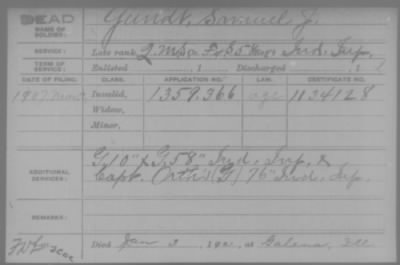 DEAD
NAME OF SOLDIER: Gundt, Samuel J.
SERVICE: Late rank Q.M.S. 55 Ind. Inf.
TERM OF SERVICE: Enlisted 1 Discharged 1
DATE OF FILING. CLASS. APPLICATION NO. LAW. CERTIFICATE NO.
1907 Invalid, 1359.366 age 1134128
Widow,
Minor,
ADDITIONAL SERVICES: G 10" & G 58" Ind. Inf. &
Capt. Orth's (G) 76" Ind. Inf.
REMARKS:
Died Jan 3 at Galena, Ill